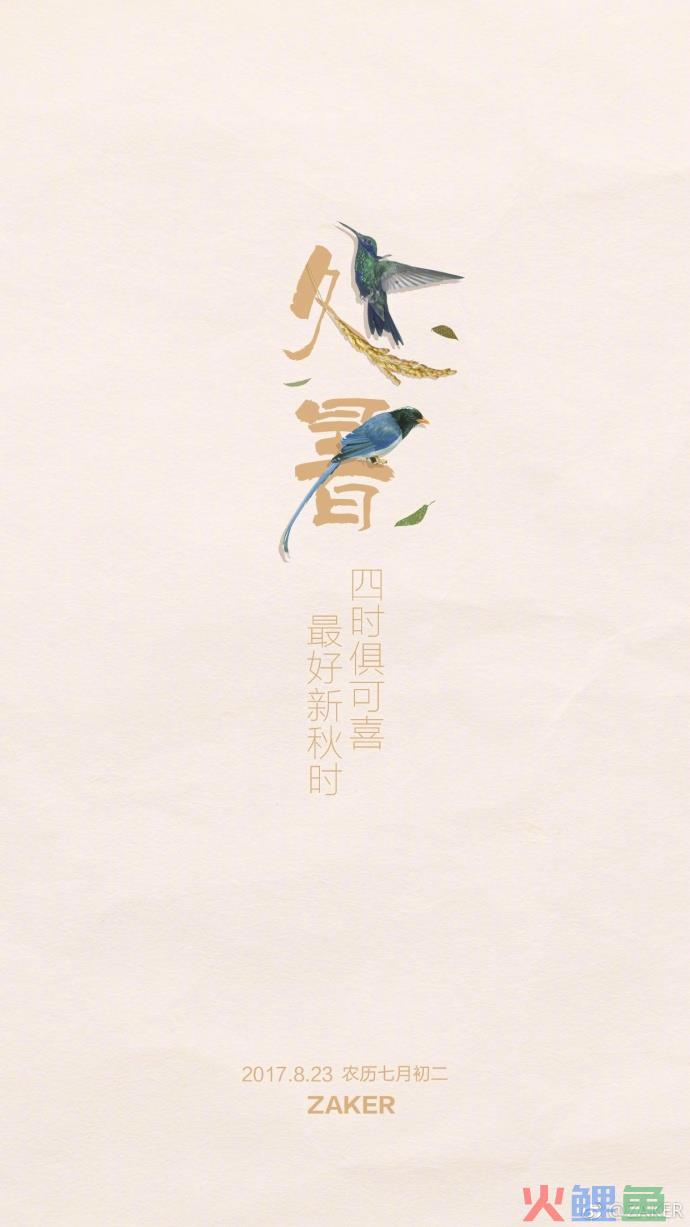 处暑
四时俱可喜
最好新秋时
2017.8.23 农历七月初二
ZAKER
火鲤鱼
@ZAKER